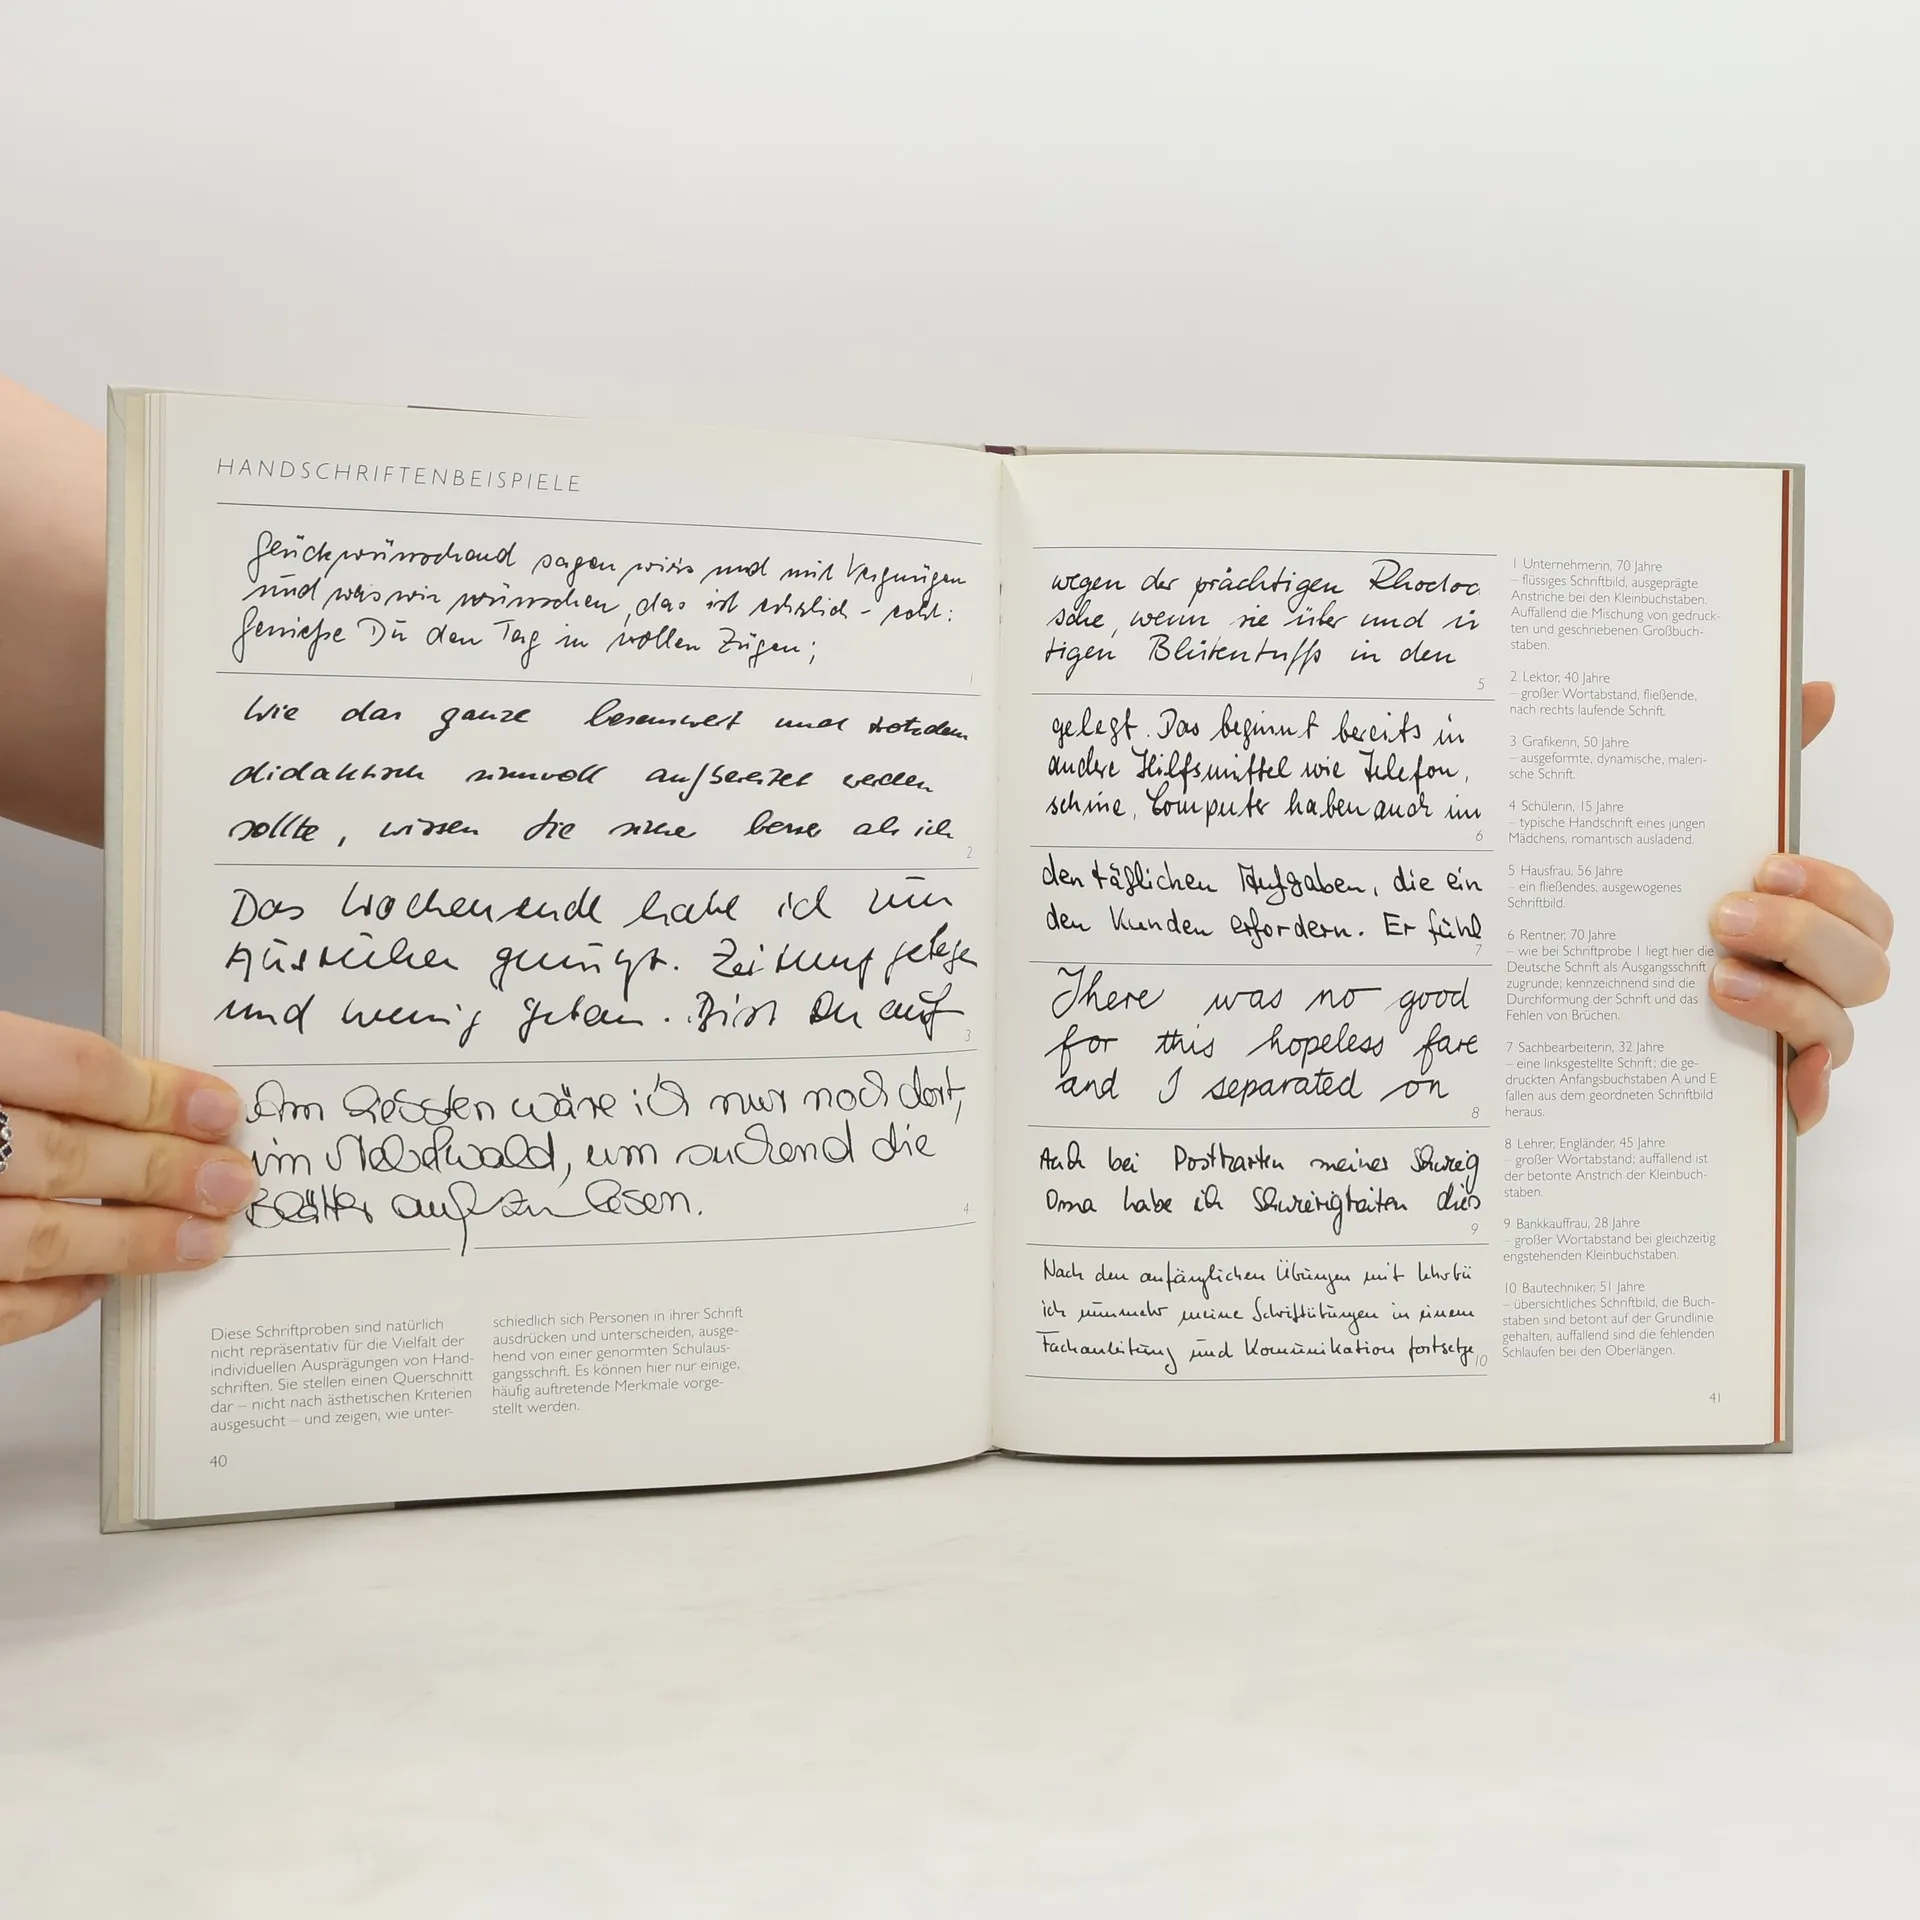 HANDSCHRIFTENBEISPIELE
Glückwünschend sagen wir's und mit Vergnügen
und was wir wünschen, das ist ehrlich - echt:
Genieße Dü den Tag in vollen Zügen;
1
Wie das ganze lesenswert und trotzdem
didaktisch sinnvoll aufbereitet werden
sollte, wissen Sie sicher besser als ich
2
Das Wochenende habe ich zum
Ausruhen genützt. Zeitung gelesen
und wenig getan. Bist Du auf
3
Am liebsten wäre ich nur noch dort,
im Nebelwald, um suchend die
Blätter aufzulesen.
4
Diese Schriftproben sind natürlich
nicht repräsentativ für die Vielfalt der
individuellen Ausprägungen von Hand-
schriften. Sie stellen einen Querschnitt
dar – nicht nach ästhetischen Kriterien
ausgesucht – und zeigen, wie unter-
schiedlich sich Personen in ihrer Schrift
ausdrücken und unterscheiden, ausge-
hend von einer genormten Schulaus-
gangsschrift. Es können hier nur einige,
häufig auftretende Merkmale vorge-
stellt werden.
40
wegen der prächtigen Rhodod
sche, wenn sie über und ü
tigen Blütentuffs in den
5
gelegt. Das beginnt bereits in
andere Hilfsmittel wie Telefon,
schine, Computer haben auch im
6
den täglichen Aufgaben, die ein
den Kunden erfordern. Er fühl
7
There was no good
for this hopeless fare
and I separated on
8
Auch bei Postkarten meiner Schwieg
Oma habe ich Schwierigkeiten dies
9
Nach den anfänglichen Übungen mit Lehrbü
ich nunmehr meine Schriftübungen in einem
Fachanleitung und Kommunikation fortsetze
10
1 Unternehmerin, 70 Jahre
– flüssiges Schriftbild, ausgeprägte
Anstriche bei den Kleinbuchstaben.
Auffallend die Mischung von gedruck-
ten und geschriebenen Großbuch-
staben.
2 Lektor, 40 Jahre
– großer Wortabstand, fließende,
nach rechts laufende Schrift.
3 Grafikerin, 50 Jahre
– ausgeformte, dynamische, maleri-
sche Schrift.
4 Schülerin, 15 Jahre
– typische Handschrift eines jungen
Mädchens, romantisch ausladend.
5 Hausfrau, 56 Jahre
– ein fließendes, ausgewogenes
Schriftbild.
6 Rentner, 70 Jahre
– wie bei Schriftprobe 1 liegt hier die
Deutsche Schrift als Ausgangsschrift
zugrunde; kennzeichnend sind die
Durchformung der Schrift und das
Fehlen von Brüchen.
7 Sachbearbeiterin, 32 Jahre
– eine linksgestellte Schrift; die ge-
druckten Anfangsbuchstaben A und E
fallen aus dem geordneten Schriftbild
heraus.
8 Lehrer, Engländer, 45 Jahre
– großer Wortabstand; auffallend ist
der betonte Anstrich der Kleinbuch-
staben.
9 Bankkauffrau, 28 Jahre
– großer Wortabstand bei gleichzeitig
engstehenden Kleinbuchstaben.
10 Bautechniker, 51 Jahre
– übersichtliches Schriftbild, die Buch-
staben sind betont auf der Grundlinie
gehalten, auffallend sind die fehlenden
Schlaufen bei den Oberlängen.
41